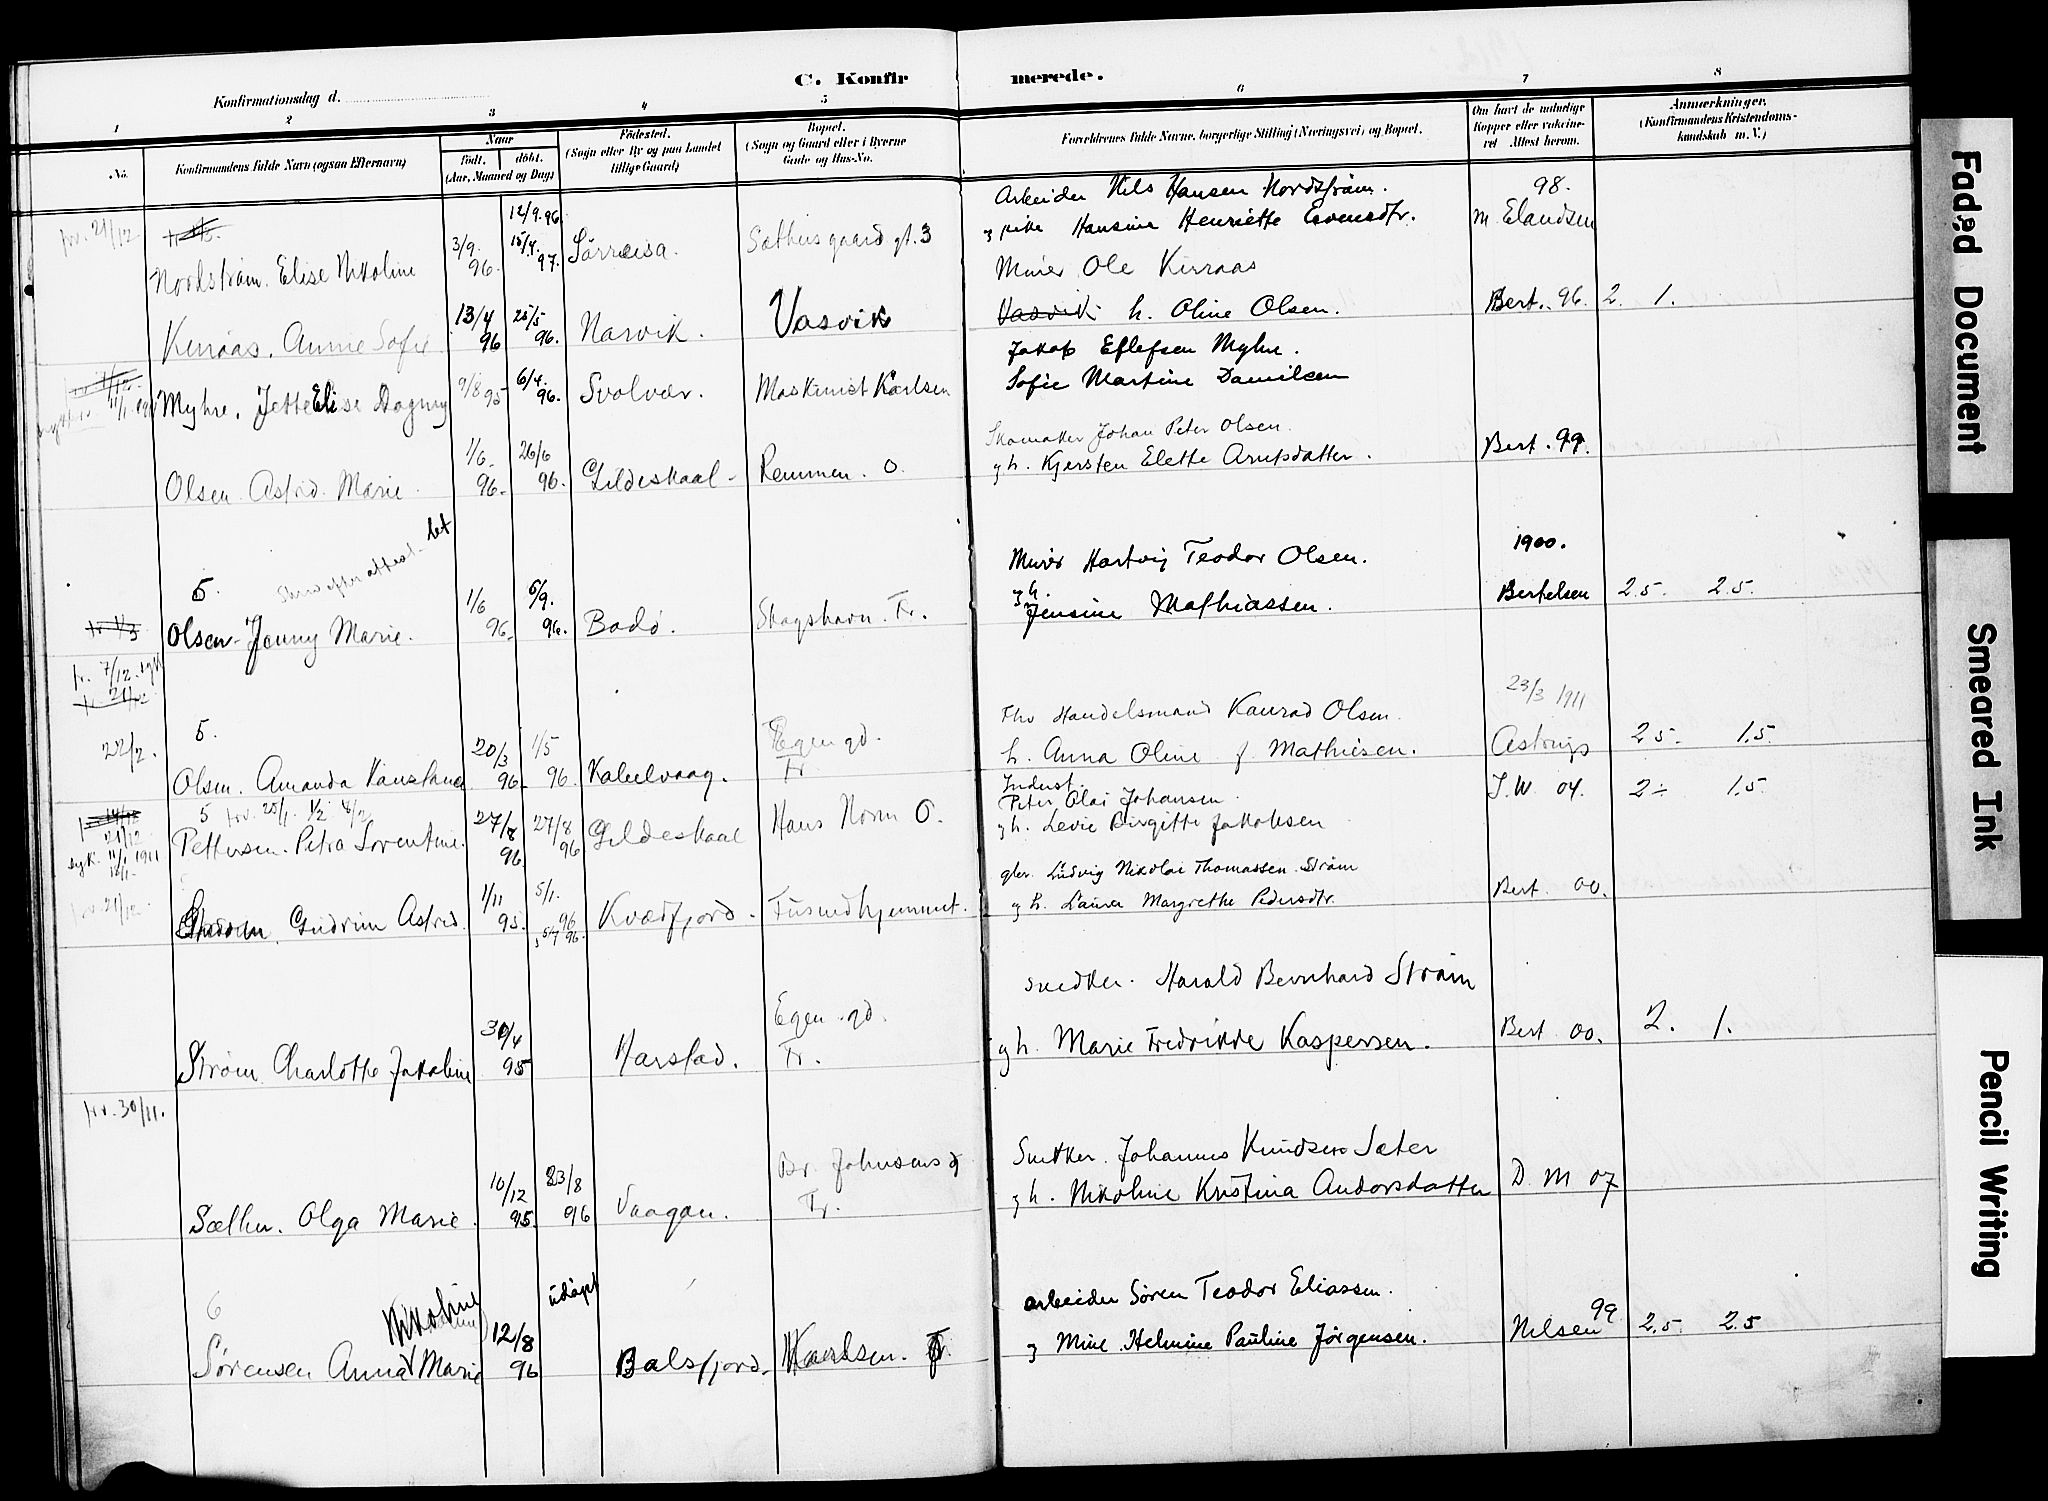 C. Konfirmerede.
Konfirmationsdag d.
1 2 3 4 5 6 7 8
No.
Konfirmandens fulde Navn (ogsaa Efternavn)
Naar
födt. döbt.
(Aar, Maaned og Dag)
Födested.
(Sogn eller By og paa Landet
tillige Gaard)
Bopæl.
(Sogn og Gaard eller i Byerne
Gade og Hus-No.
Forældrenes fulde Navne, borgerlige Stilling (Næringsvei) og Bopæl.
Om havt de naturlige
Kopper eller vaccine-
ret Attest herom.
Anmærkninger.
(Konfirmandens Kristendoms-
kundskab m. V.)
21/12
12/9.96
Arbeider Nils Hansen Nordstrøm. 98.
Nordstrøm. Elise Nikoline 3/9. 96. 15/4. 97. Sørreisa. gt. 3 pike Hansine Henriette M. Elandsen
Murer Ole Kirraas
Kirraas. Anne Sofie 13/4 96 25/5 96. Narvik. Vasvik Vasvik h. Oline Olsen. Bert. 96. 2. 1.
Jakob Ellefsen Myhre.
Myhre, Jette Elise Dagny 9/8 95 6/4. 96. Svolvær. Maskinist Karlsen Sofie Martine Danilsen
Skomaker Johan Peter Olsen.
Olsen Astrid Marie. 1/6. 96. 26/6 96. Gildeskaal Remmen. O. g h. Kjersten Elette Arntsdatter. Bert. 99.
5.
Murer Hartvig Teodor Olsen. 1900.
Olsen Jenny Marie. 1/6 96. 6/9. 96. Bodø. Skagshavn. Fr. g h. Jensine Mathiassen. Bertelsen 2.5. 2.5.
7/12
21/12
5.
Fhv Handelsmand Konrad Olsen. 23/3 1911
22/2. Olsen. Amanda 20/3 96. 1/5 96. Kabelvaag. Egen gd. Fr. h. Anna Oline f. Mathisen. 2.5. 1.5.
5 25/1. 1/2 8/2
21/12
syk. 11/1 1911
Indust.
Peter Olai Johansen. J.W 04. 2÷ 1.5.
Pettersen. Petra Sorentine. 27/8 96. 27/8 96 Gildeskaal Hans Horn O. g h. Levie Birgitte Jakobsen
Ludvig Nikolai Thomassen Strøm
21/12. Gudrun Astrid. 1/11 95. 5/1. 96 5/7 96. Kvædfjord. g h. Laura Margrethe Pedersdtr. Bert. 00.
snedker. Harald Bernhard Strøm
Strøm Charlotte Jakobine 30/4 95 Harstad. Egen gd. Fr. g h. Marie Fredrikke Kaspersen. Bert 00. 2. 1.
30/11.
Snekker. Johannes Knudsen Sæter
Sæther. Olga Marie. 10/12 95. 23/8 96 Vaagan. Br. Johnsens g. Fr. g h. Nikoline Kristina Andorsdatter D. M 07
6
Nikoline udøpt
arbeider Søren Teodor Eliassen. 99
Sørensen Anna Marie 12/8 96 Balsfjord. Karlsen. Fr. g Mine Helmine Pauline Jørgensen. Nilsen 2.5. 2.5
Faded Document
Smeared Ink
Pencil Writing